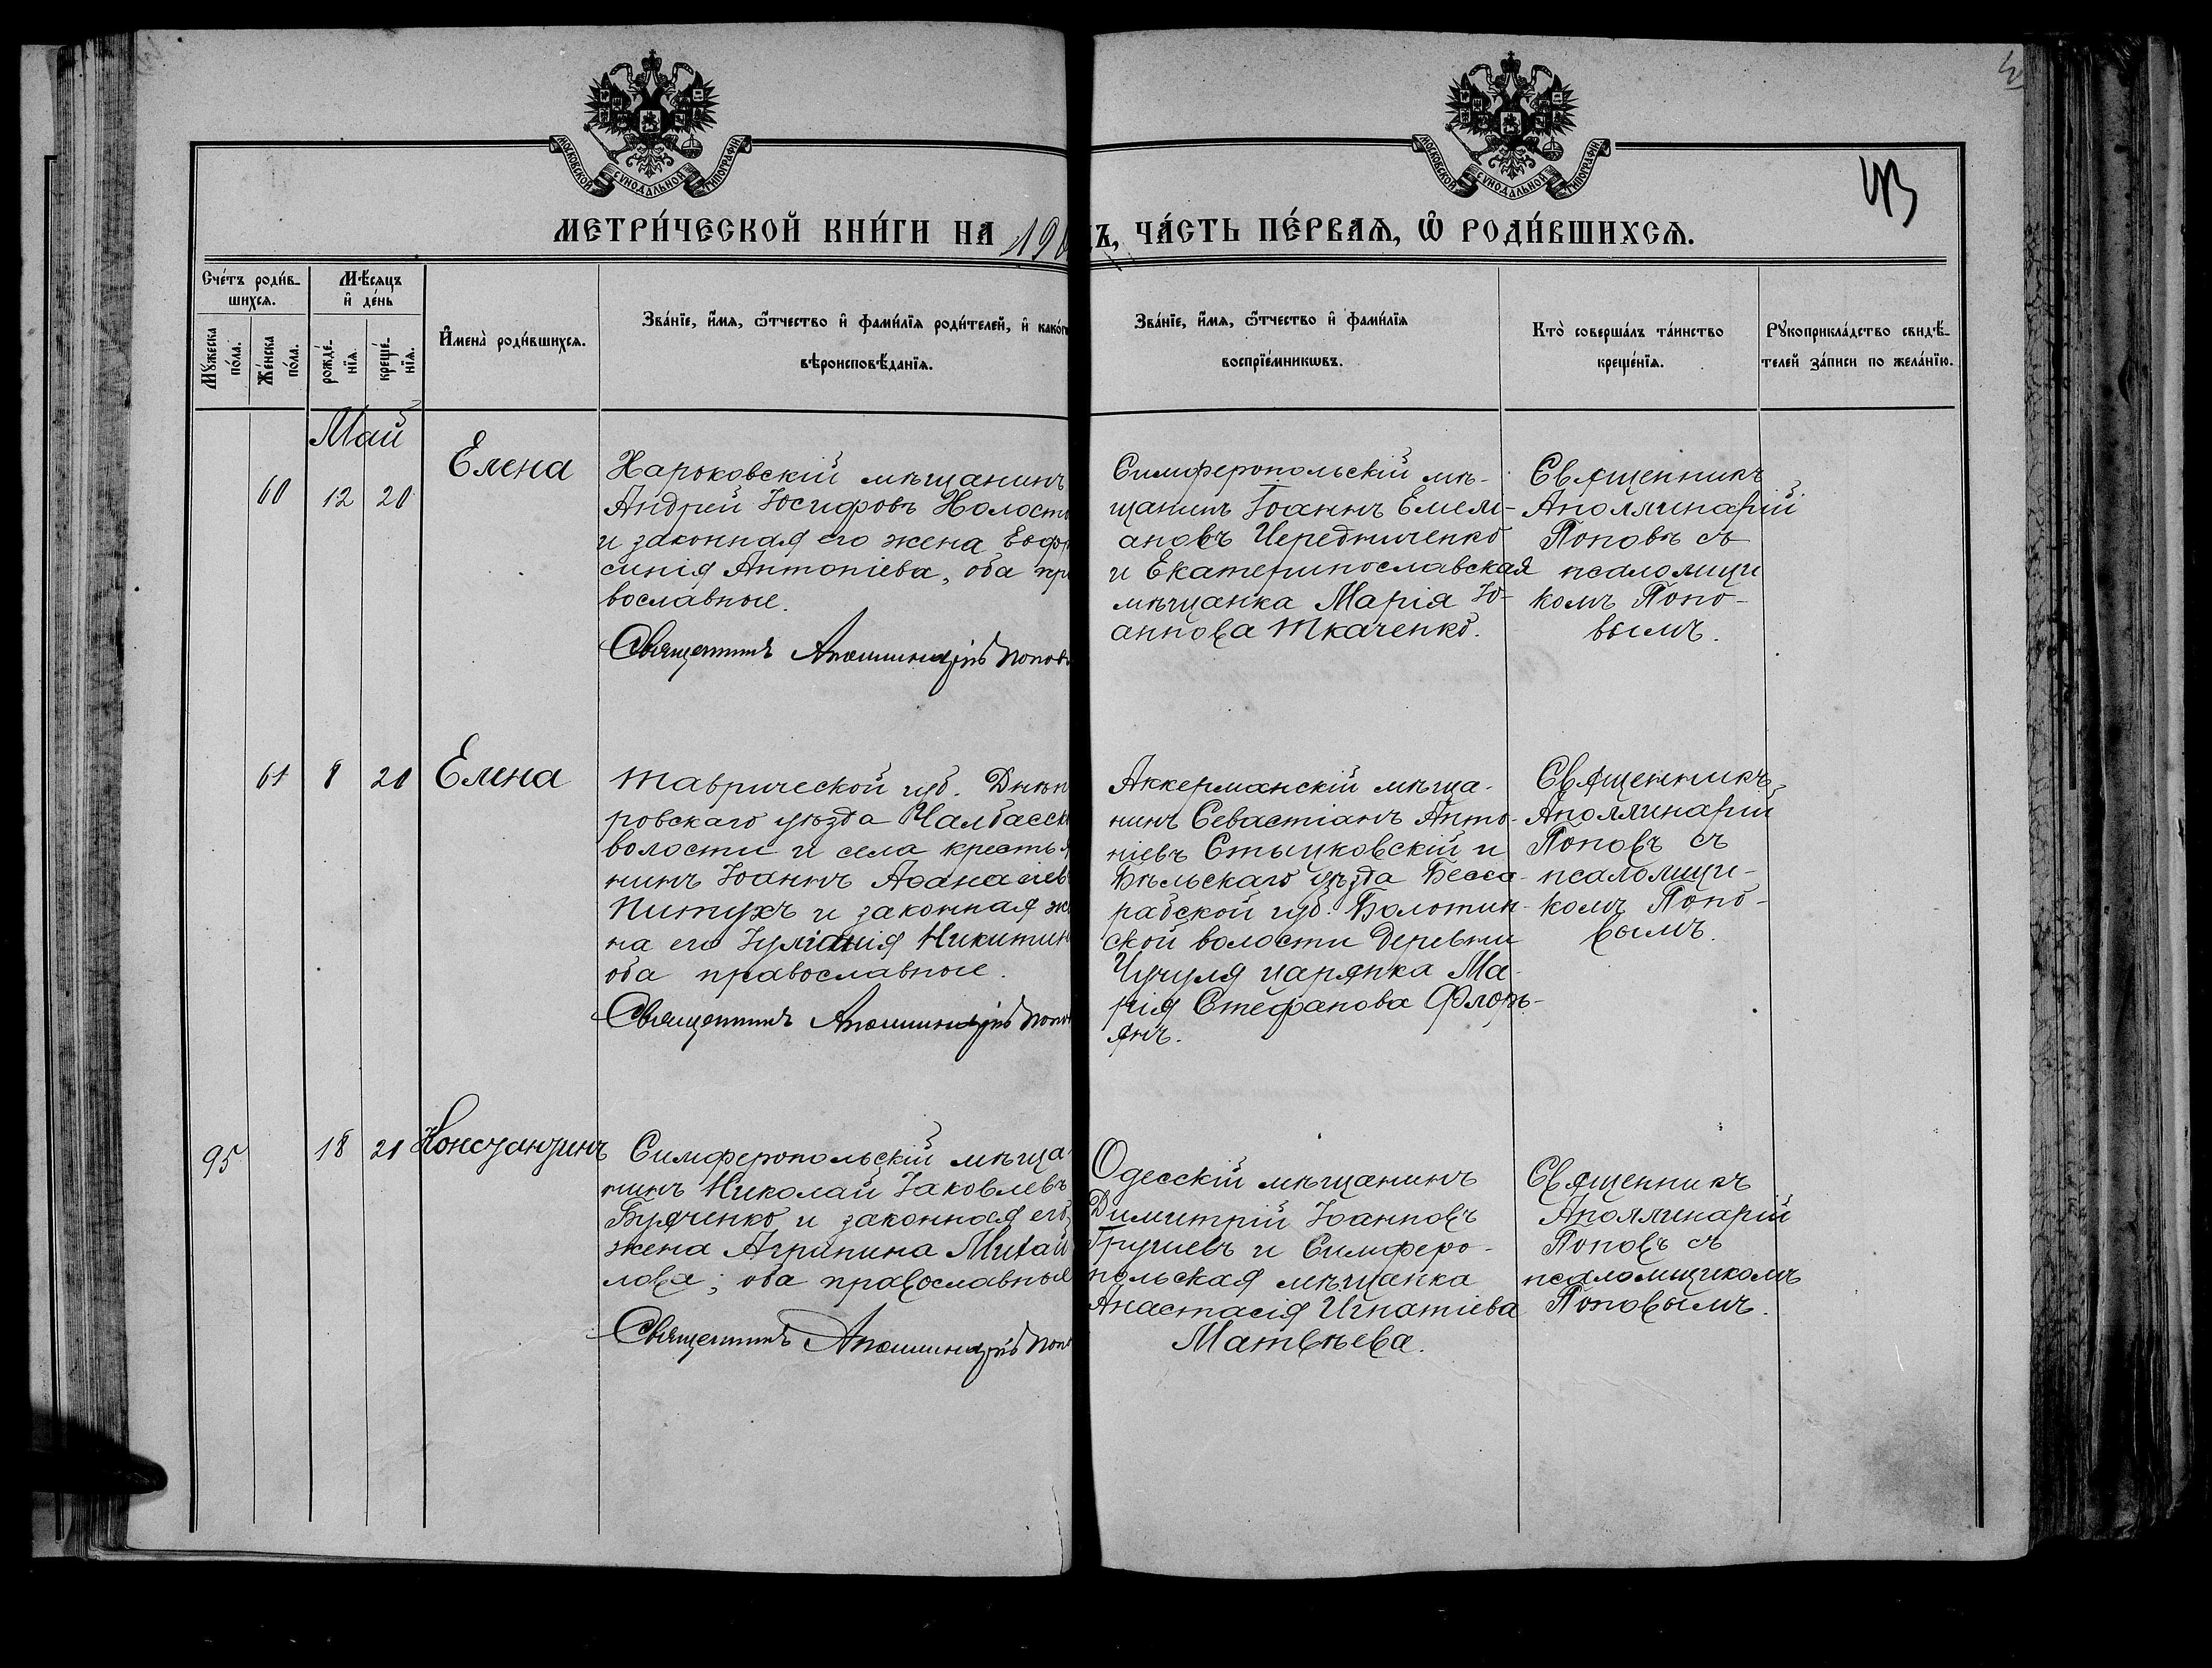 МОСКОВСКОЙ СѴНОДАЛЬНОЙ ТИПОГРАФІИ
МОСКОВСКОЙ СѴНОДАЛЬНОЙ ТИПОГРАФІИ
43
МЕТРИ́ЧЕСКОЙ КНИ́ГИ НА 190
Ъ, ЧА́СТЬ ПЕ́РВАѦ, Ѽ РОДИ́ВШИХСѦ.
Сче́тъ роди́в-
шихсѧ.
Мꙋжеска
по́ла.
Же́нска
по́ла.
Мѣ́сѧцъ
и҆ де́нь
рожде́-
нїѧ.
креще́-
нїѧ.
И҆мена̀ роди́вшихсѧ.
Зва́нїе, и҆́мѧ, ѻ҆́тчество и҆ фами́лїѧ роди́телей, и҆ како́г
вѣроисповѣ́данїѧ.
Зва́нїе, и҆́мѧ, ѻ҆́тчество и҆ фами́лїѧ
воспрїе́мникѡвъ.
Кто̀ соверша́лъ та́инство
креще́нїѧ.
Рꙋкоприкла́дство свидѣ́-
телей за́писи по жела́нїю.
Май
60 12 20
Елена
Харьковскій мѣщанинъ
Андрей Іосифовъ Холосто
и законная его жена Евфр
синія Антоніева, оба пр
вославные.
Священникъ Аполлинарій Попов
Симферопольскій мѣ-
щанинъ Іоаннъ Емелі-
ановъ Чередниченко
и Екатеринославская
мѣщанка Марія Іо-
аннова Ткаченко.
Священникъ
Аполлинарій
Поповъ съ
псаломщи
комъ Попо-
вымъ.
61 8 20
Елена
Таврической губ. Днѣп
ровскаго уѣзда Чалбасск
волости и села крестья
нинъ Іоаннъ Аѳанасіев
Питухъ и законная же
на его Іуліанія Никитин
оба православные.
Священникъ Аполлинарій Попо
Аккерманскій мѣща-
нинъ Севастіанъ Анто-
ніевъ Стыцковскій и
Бѣльскаго уѣзда Бесса-
рабской губ. Болотин-
ской волости деревни
Чучуля царянка Ма-
рія Стефанова Флорь-
янъ.
Священникъ
Аполлинарій
Поповъ съ
псаломщи-
комъ Попо-
вымъ.
95 18 21
Константинъ
Симферопольскій мѣща
нинъ Николай Іаковлевъ
Будченко и законная его
жена Агрипина Михай
лова; оба православные
Священникъ Аполлинарій Попо
Одесскій мѣщанинъ
Димитрій Іоанновъ
Гручиевъ и Симферо-
польская мѣщанка
Анастасія Игнатіева
Матвѣева.
Священникъ
Аполлинарій
Поповъ съ
псаломщикомъ
Поповымъ.